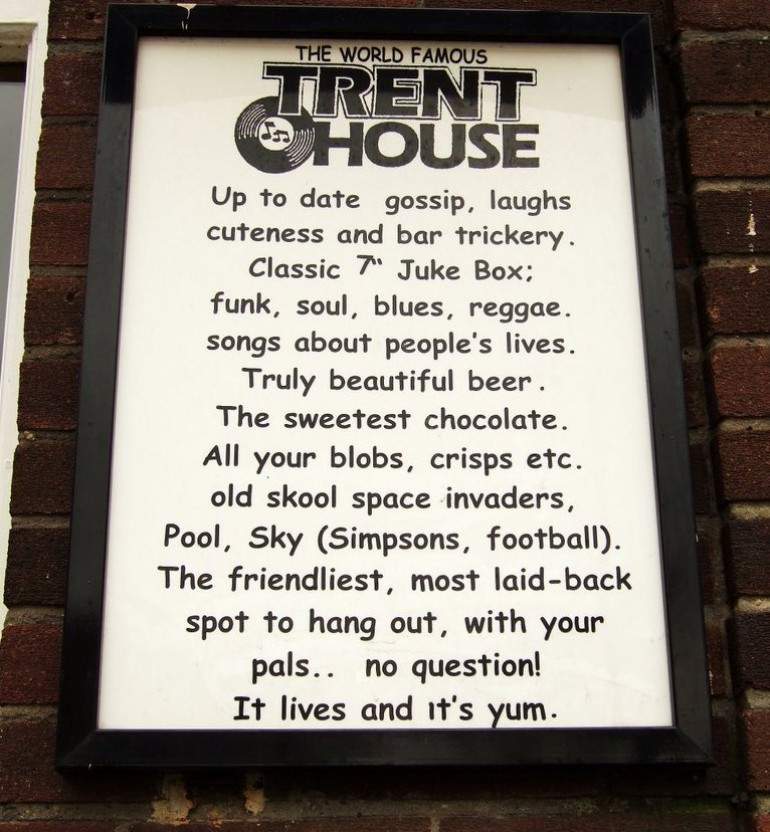 THE WORLD FAMOUS
TRENT
HOUSE
Up to date gossip, laughs
cuteness and bar trickery.
Classic 7" Juke Box;
funk, soul, blues, reggae.
songs about people's lives.
Truly beautiful beer.
The sweetest chocolate.
All your blobs, crisps etc.
old skool space invaders,
Pool, Sky (Simpsons, football).
The friendliest, most laid-back
spot to hang out, with your
pals.. no question!
It lives and it's yum.